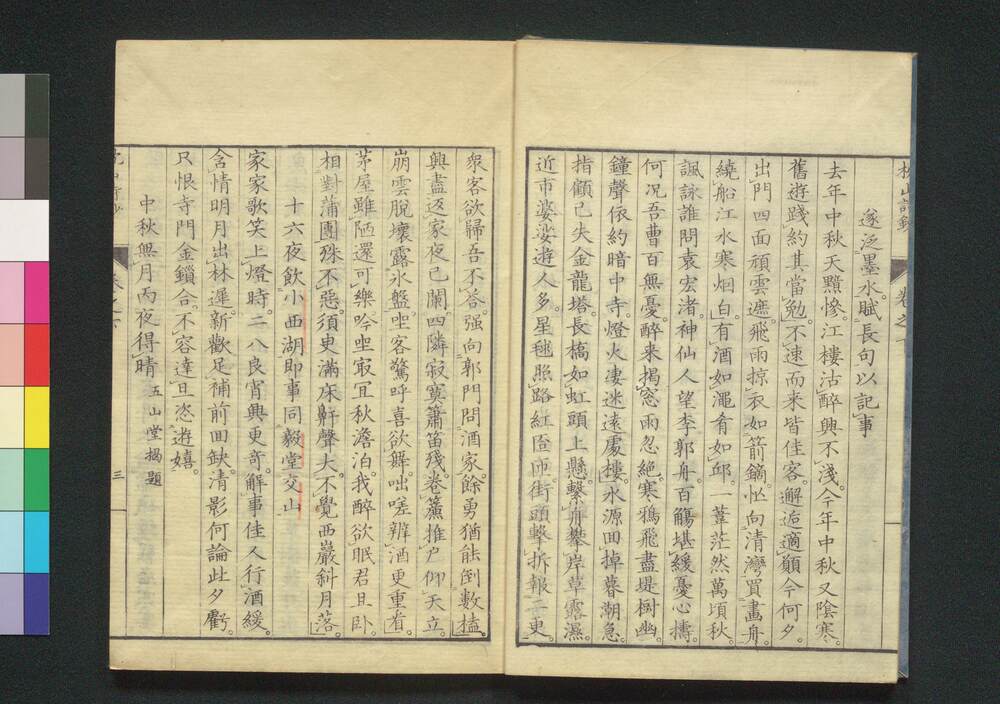 遂泛墨水賦長句以記事
去年中秋天黯慘江樓沽醉興不淺今年中秋又陰寒
舊遊踐約其當勉不速而来皆佳客邂逅適願今何夕
出門四面頑雲遮飛雨掠衣如箭鏑怭向清灣買畫舟
繞船江水寒烟白有酒如澠肴如邱一葦茫然萬頃秋
諷詠誰問袁宏渚神仙人望李郭舟百觴堪緩憂心擣
何況吾曹百無憂醉来揭窓雨忽絶寒鴉飛盡堤樹幽
鐘聲依約暗中寺燈火凄迷遠處樓水源回掉暮潮急
指顧已失金龍塔長橋如虹頭上懸繫舟攀岸草露濕
近市婆娑遊人多星毬照路紅匼匝街頭擊拆報二更
衆客欲歸吾不答强向郭門問酒家餘勇猶能倒數榼
興盡返家夜已闌四隣寂寞簫笛殘卷簾推户仰天立
崩雲脱壞露氷盤坐客驚呼喜欲舞咄嗟辨酒更重看
茅屋雖陋還可樂吟坐㝡冝秋澹泊我醉欲眠君且卧
相對蒲團殊不惡須更滿床鼾聲大不覺西巖斜月落
十六夜飲小西湖即事同毅堂交山
家家歌笑上燈時二八良宵興更奇解事佳人行酒緩
含情明月出林遲新歡足補前回缺清影何論此夕虧
只恨寺門金鎖合不容達旦恣遊嬉
中秋無月丙夜得晴 五山堂揭題
三